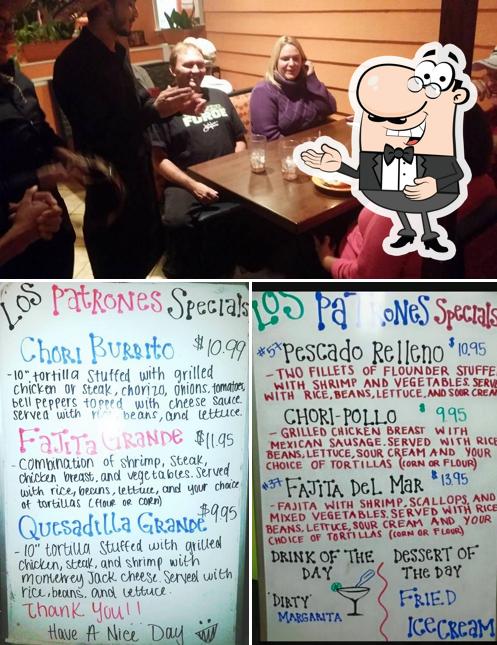 FORCE
Los Patrones Specials
Chori Burrito $10.99
-10" tortilla Stuffed with grilled
chicken or steak, chorizo, onions, tomatoes,
bell peppers topped with cheese sauce.
Served with rice, beans, and lettuce.
Fajita Grande $11.95
- Combination of shrimp, Steak,
chicken breast, and vegetables. Served
with rice, beans, lettuce, and your choice
of tortillas (flour or corn)
Quesadilla Grande $9.95
- 10" tortilla Stuffed with grilled
chicken, steak, and shrimp with
monterrey Jack cheese. Served with
rice, beans, and lettuce.
Thank You!!
Have A Nice Day
Los Patrones Specials
#57 Pescado Relleno $10.95
- TWO FILLETS OF FLOUNDER STUFFE
WITH SHRIMP AND VEGETABLES. SERVE
WITH RICE, BEANS, LETTUCE, AND SOUR CREAM
CHORI-POLLO $9.95
- GRILLED CHICKEN BREAST WITH
MEXICAN SAUSAGE. SERVED WITH RICE
BEANS, LETTUCE, SOUR CREAM AND YOUR
CHOICE OF TORTILLAS (CORN OR FLOUR)
#37 FAJITA DEL MAR $13.95
- FAJITA WITH SHRIMP, SCALLOPS, AND
MIXED VEGETABLES. SERVED WITH RICE
BEANS, LETTUCE, SOUR CREAM AND YOUR
CHOICE OF TORTILLAS (CORN OR FLOUR)
DRINK OF THE
DAY
"DIRTY"
MARGARITA
DESSERT OF
THE DAY
FRIED
ICE CREAM